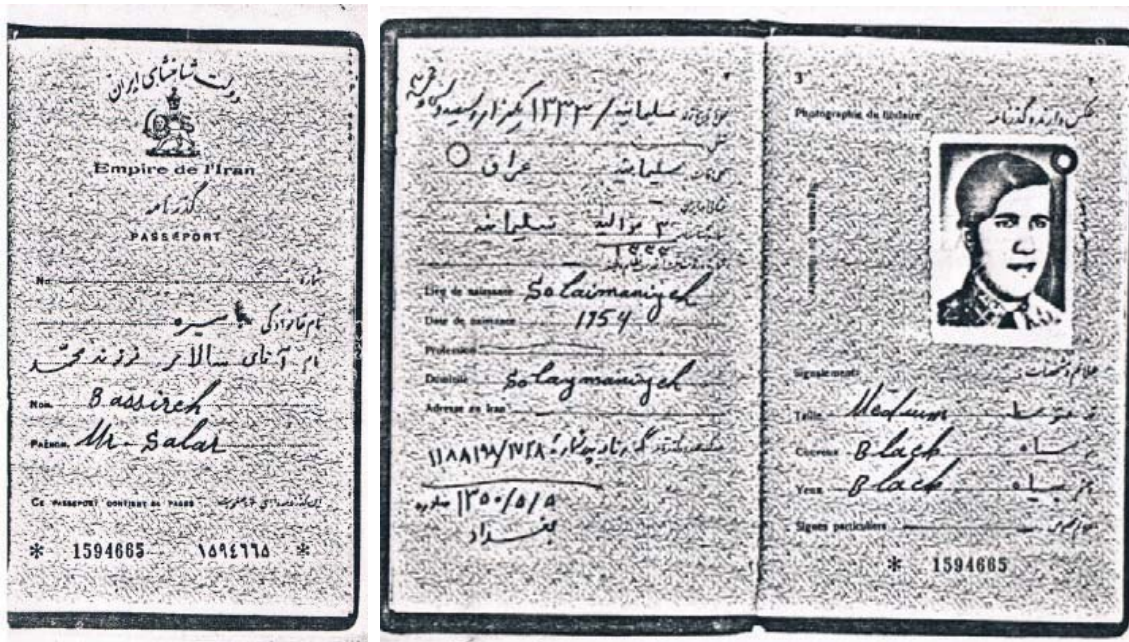 دولت شاهنشاهی ایران
Empire de l'Iran
گذرنامه
PASSEPORT
No. شماره
نام خانوادگی باسیره
نام آقای سالار فرزند محمد
Nom. Bassireh
Prénom. Mr. Salar
Ce passeport contient 24 pages
* 1594665 ۱۵۹۴۶۶۵ *
سلیمانیه / ۱۳۳۳ یکهزار و سیصد و سی و سه
سلیمانیه عراق
سلیمانیه
Lieu de naissance Solaimaniyeh
Date de naissance 1954
Profession
Domicile Solaymaniyeh
Adresse en Iran
۱۳۵۰/۵/۵
بغداد
3
Photographie du titulaire عکس دارنده گذرنامه
Signature du titulaire
Signalement علائم و مشخصات
Taille Medium قد متوسط
Cheveux Black سیاه
Yeux Black سیاه
Signes particuliers
* 1594665